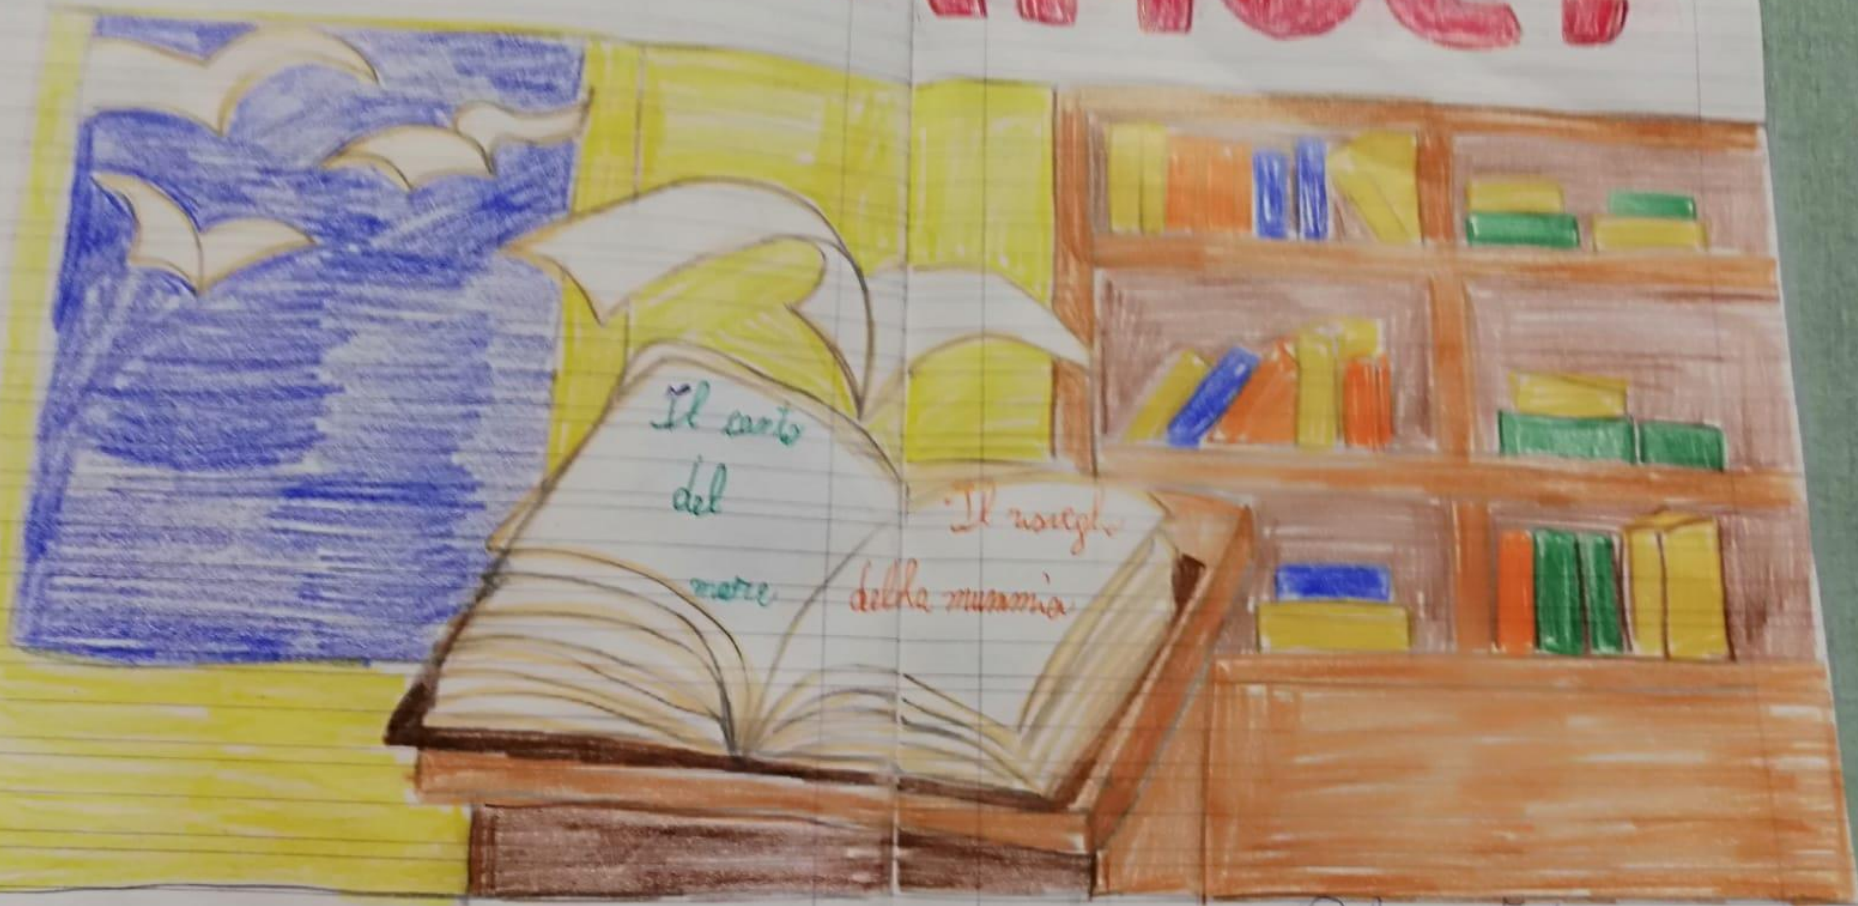 Il canto
del
mare
Il risveglio
della mummia